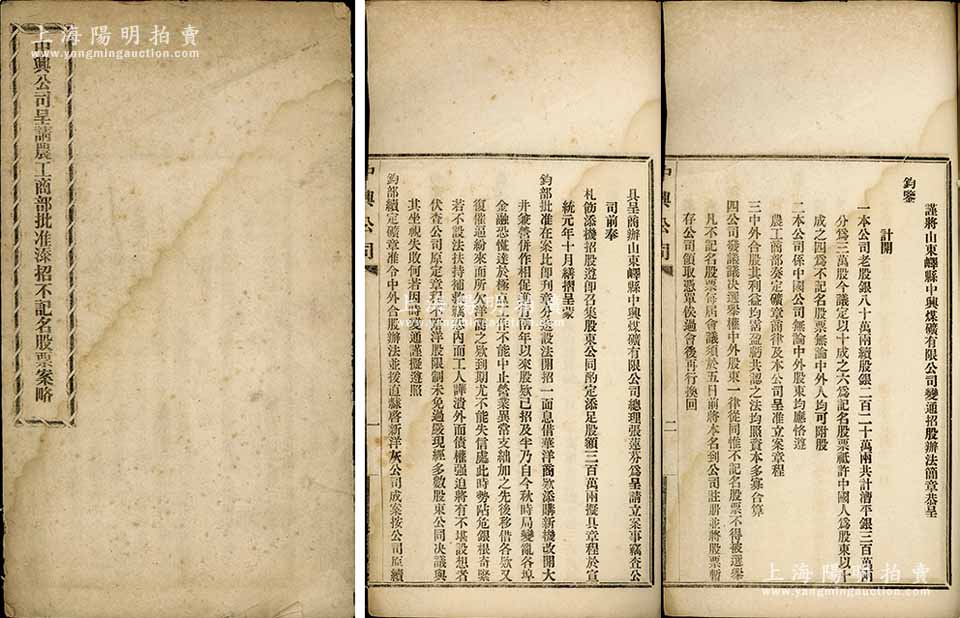 上海陽明拍賣
www.yangmingauction.com
中興公司呈請農工商部批准添招不記名股票案略
具呈商辦山東嶧縣中興煤礦有限公司總理張蓮芬為呈請立案事竊查公
司前奉
札飭添機招股遵即召集股東公同酌定添足股額三百萬兩擬具章程於宣
統元年十月繕摺呈蒙
鈞部批准在案比即刊章分途設法開招一面息借華洋商款添購新機改開大
井兼營併作相促進行兩年以來股款已招及半乃自今秋時局變亂各埠
金融恐慌達於極點工作不能中止營業異常支絀加之先後移借各款又
復催逼紛來而所欠洋商之款到期尤不能失信處此時勢阽危銀根奇緊
若不設法扶持補救竊恐內面工人譁潰外面債權强迫將有不堪設想者
伏查公司原定章程不附洋股限制未免過嚴現經多數股東公同决議與
其坐視失敗何若因時變通謹擬遵照
鈞部續定礦章准令中外合股辦法並援直隸啓新洋灰公司成案按公司原續
中興公司
一
謹將山東嶧縣中興煤礦有限公司變通招股辦法簡章恭呈
鈞鑒
計開
一本公司老股銀八十萬兩續股銀二百二十萬兩共計濟平銀三百萬兩
分為三萬股今議定以十成之六為記名股票祗許中國人為股東以十
成之四為不記名股票無論中外人均可附股
二本公司係中國公司無論中外股東均應恪遵
農工商部奏定礦章商律及本公司呈准立案章程
三中外合股其利益均霑盈虧共認之法均照資本多寡合算
四公司發議議决選舉權中外股東一律從同惟不記名股票不得被選舉
凡不記名股票每屆會議須於五日前將本名到公司註册並將股票暫
存公司領取憑單俟過會後再行換回
中興公司
二
上海陽明拍賣
www.yangmingauction.com
上海陽明拍賣
www.yangmingauction.com